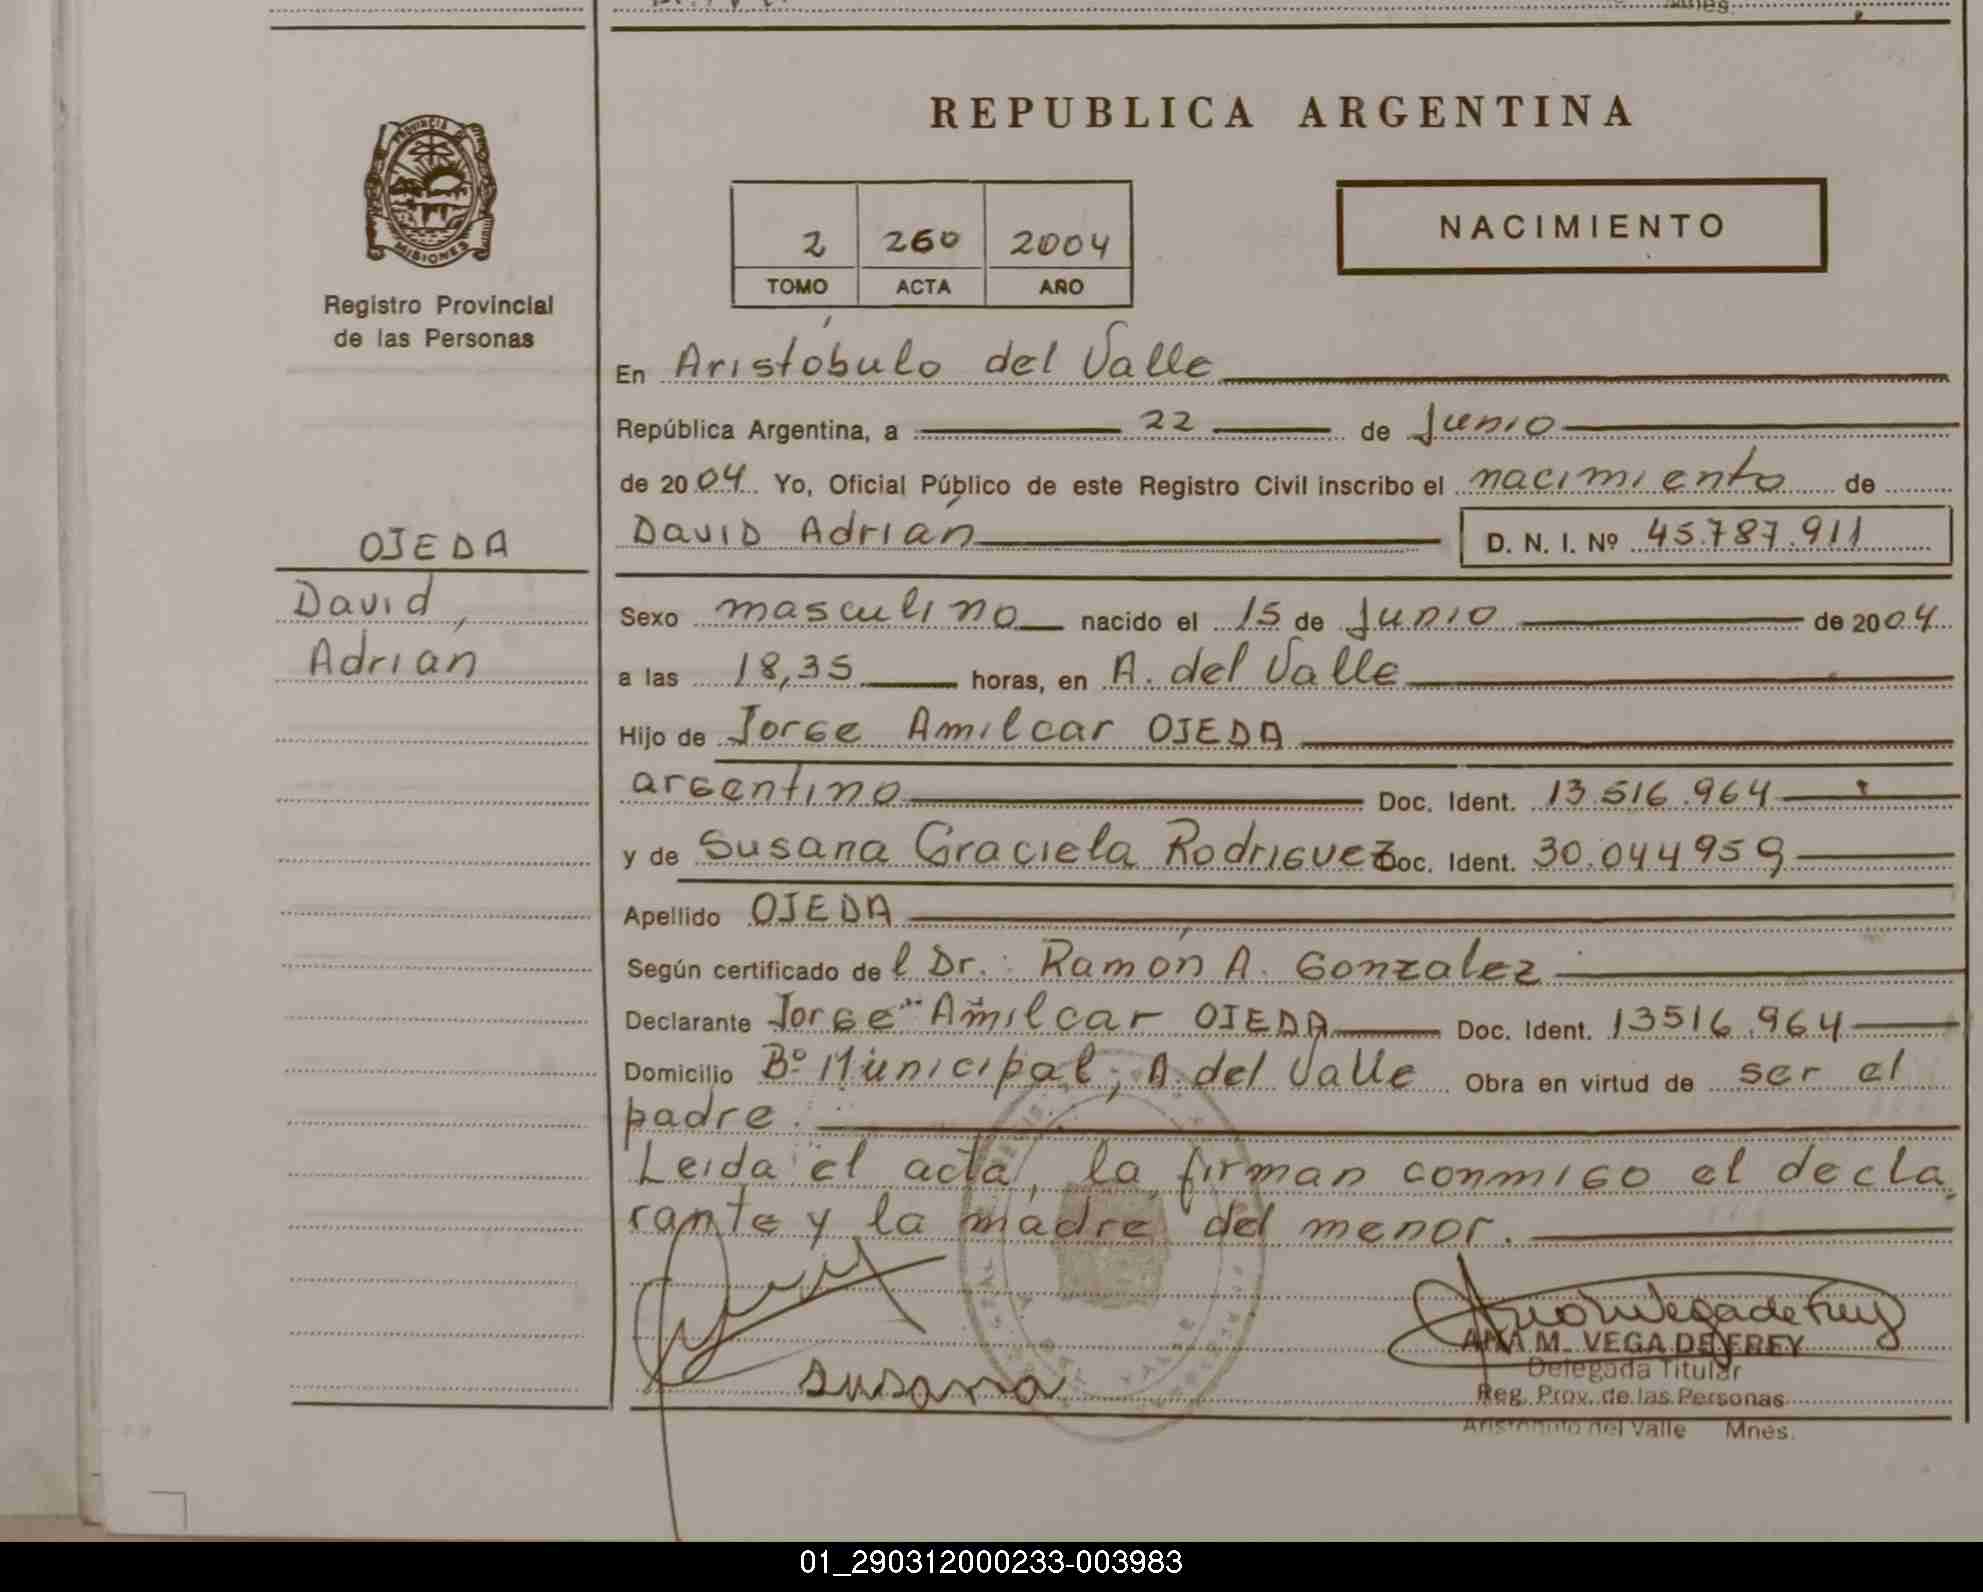 REPUBLICA ARGENTINA
PROVINCIA DE
MISIONES
Registro Provincial
de las Personas
2 260 2004
TOMO ACTA AÑO
NACIMIENTO
En Aristóbulo del Valle
República Argentina, a 22 de Junio
de 2004 Yo, Oficial Público de este Registro Civil inscribo el nacimiento de
David Adrián D. N. I. Nº 45.787.911
OJEDA
David
Adrián
Sexo masculino nacido el 15 de Junio de 2004
a las 18,35 horas, en A. del Valle
Hijo de Jorge Amilcar OJEDA
argentino Doc. Ident. 13.516.964
y de Susana Graciela Rodriguez Doc. Ident. 30.044959
Apellido OJEDA
Según certificado del Dr.: Ramón A. Gonzalez
Declarante Jorge Amilcar OJEDA Doc. Ident. 13516.964
Domicilio Bº Municipal, A. del Valle Obra en virtud de ser el
padre.
Leida el acta, la firman conmigo el decla
rante y la madre del menor.
Susana
ANA M. VEGA DE FREY
Delegada Titular
Reg. Prov. de las Personas
Aristóbulo del Valle Mnes.
01_290312000233-003983